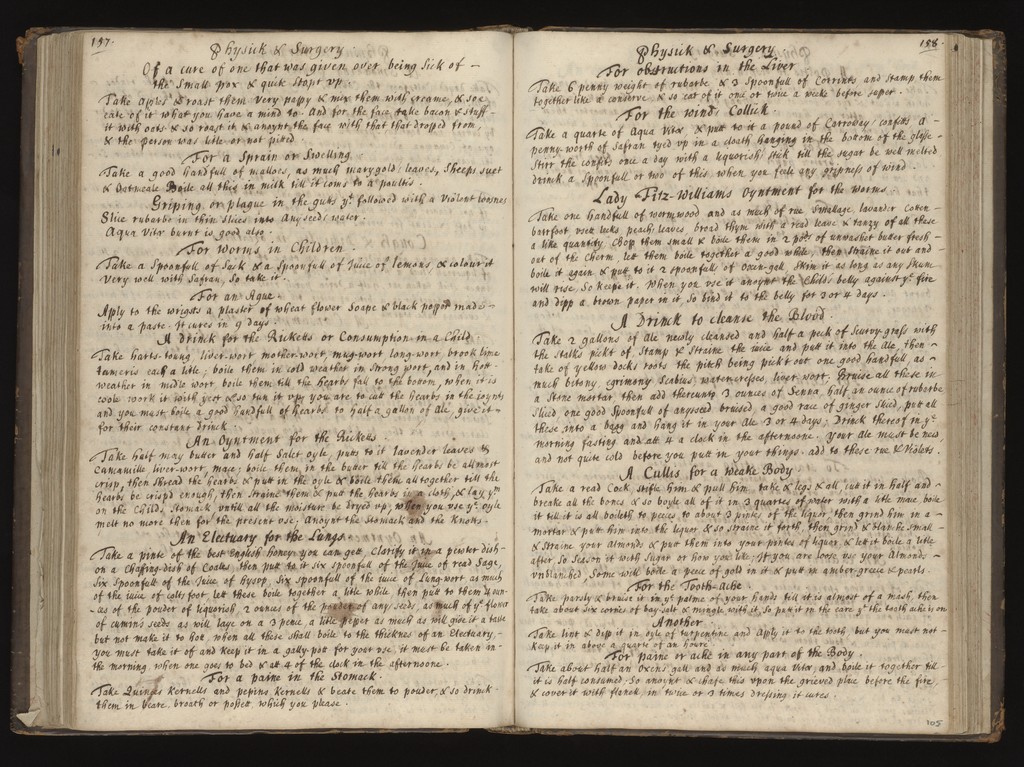 157.
Physick & Surgery
Of a cure of one that was given over being sick of
the small pox & quite stopt vp.
Take Aples & roast them very papy & mix them with creame, & soe
eate of it what you have a mind to. And for the face take bacon & stuff
it with oats & so roast it & anoynt the face with that that droped from,
& the person was litle or not pitted.
For a Sprain or Swelling
Take a good handfull of mallows, as much marygold leaves, Sheeps suet
& Oatmeale Boile all this in milk till it coms to a poultis.
Griping or plague in the guts yt followed with a violent
Slice rubarbe in thin slices into Anyseed water.
Aqua Vitæ burnt is good also.
For Worms in Children
Take a Spoonfull of Sack & a Spoonfull of Juice of lemons & colour it
Very well with Safran, So take it.
For an Ague.
Aply to the wrigsts a plaster of wheat flower Soape & black peper made
into a paste. It cures in 9 days.
A drink for the Ricketts or Consumption in a Child
Take harts-toung liver-wort mother-wort, mug-wort long-wort brook lime
tameris each a litle; boile them in cold weather in strong wort, and in hott
weather in midle wort boile them till the hearbs fall to the botom, when it is
coole work it with yest & so tun it vp, you are to cutt the hearbs in the joynts
and you must boile a good handfull of hearbs to half a gallon of Ale, give it
for their constant drinck.
An Oyntment for the Ricketts
Take half may butter and half Salet oyle, putt to it lavender leaves
Camamille liver-wort, mace; boile them in the butter till the hearbs be allmost
crisp, then shread the hearbs & putt in the oyle & boile them all together till the
hearbs be crispd enough, then straine them & putt the hearbs in a cloth, & lay ym
on the Childs Stomack vntill all the moisture be dryed vp, when you vse ye oyle
melt no more then for the present vse; Anoynt the Stomack and the Knees.
An Electuary for the Lungs.
Take a pinte of the best English honey you can gett, clarify it in a pewter dish
on a chaffing-dish of Coales, then putt to it six spoonfull of the Juice of read Sage,
Six Spoonfull of the Juice of hysop, Six spoonfull of the iuice of Lung-wort as much
of the iuice of colts foot, let these boile together a litle while then putt to them 4 oun-
-ces of the powder of liquorish, 2 ounces of the powder of any seeds, as much of ye flower
of cumin seeds as will laye on a 3 pence, a litle peper as much as will give it a taste
but not make it to hott, when all these shall boile to the thicknes of an Electuary,
you must take it of and keep it in a gally-pott for your vse, it must be taken in
the morning when one goes to bed & att 4 of the clock in the afternoone.
For a paine in the Stomack.
Take Quinces Kernells and pepins Kernells & beate them to pouder, & so drink
them in beare, broath or possett, which you please.
158.
Physick & Surgery
For obstructions in the Liver
Take 6 penny weight of rubarbe & 3 Spoonfull of Corrents and stamp them
together like a conserve & so eat of it one or twice a weeke before super.
For the wind Collick.
Take a quarte of Aqua Vitæ, & putt to it a pound of Corroway confits a
penny-worth of Safran tyed vp in a cloath hanging in the bottom of the glasse
Stirr the confits once a day with a liquorish stick till the sugar be well melted
drinck a spoonfull or two of this, when you feele any gripness of wind.
Lady Fitz-Williams Oyntment for the worms.
Take one handfull of wormwood and as much of rue Smallage, lavander Cotten
barrfoot vsett leeks peach leaves, broad thym with a read leave & tanzy of all these
a like quantity. Chop them small & boile them in 2 pots of unwashet butter fresh
out of the Cherm, let them boile together a good while, then straine it out and
boile it again & putt to it 2 spoonfulls of Oxen-gall, skim it as long as any skum
will rise, so keepe it. When you vse it anoynt the Childs belly against ye fire
and dipp a brown paper in it, so bind it to the belly for 3 or 4 days.
A Drinck to cleanse the Blood.
Take 2 gallons of Ale newly cleansed and half a peck of Scurvy-grass with
the stalks pickt of Stamp & straine the iuice and putt it into the Ale, then
take of yellow docks roots the pitch being pickt out one good handfull, as
much bitony, egrimony Scabius, watercresses, liver wort. Bruise all these in
a Stone mortar then add thereunto 3 ounces of Senna, half an ounce of rubarbe
Sliced, one good Spoonfull of anyseed bruised, a good race of ginger sliced, putt all
these into a bagg and hang it in your Ale 3 or 4 days; Drink thereof in ye
morning fasting and att 4 a clock in the afternoone. Your Ale must be new,
and not quite cold before you putt in your things. add to these rue & violets.
A Cullis for a Weake Body
Take a read Cock, stifle him & pull him take & legs & all, cutt it in half and
breake all the bones & so boyle all of it in 3 quartes of water with a litle mace boile
it till it is all boileth to peices to about 3 pintes of the liquor, then grind him in a
mortar & putt him into the liquor & so straine it forth, then grind & blanche small
& straine your Almonds & putt them into your pintes of liquor, & lett it boile a litle
after so season it with sugar or how you like; If you are loose vse your Almonds
vnblanched, Some will boile a peece of gold in it & putt in amber-greece & pearls.
For the Tooth-Ache
Take parsly & bruise it in ye palme of your hands till it is almost of a mash, then
take about six cornes of bay salt & mingle with it, so putt it in the eare ye the tooth ache is on
Another
Take lint & dipp it in oyle of turpentine and apply it to the tooth but you must not
keep it in above a quarter of an houre
For paine or ache in any part of the Body.
Take about half an Oxens gall and as much aqua Vitæ, and boile it together till
it is half consumed; So anoynt & chafe this vpon the grieved place before the fire,
& cover it with flanell, in twice or 3 times dressing it cures.
105